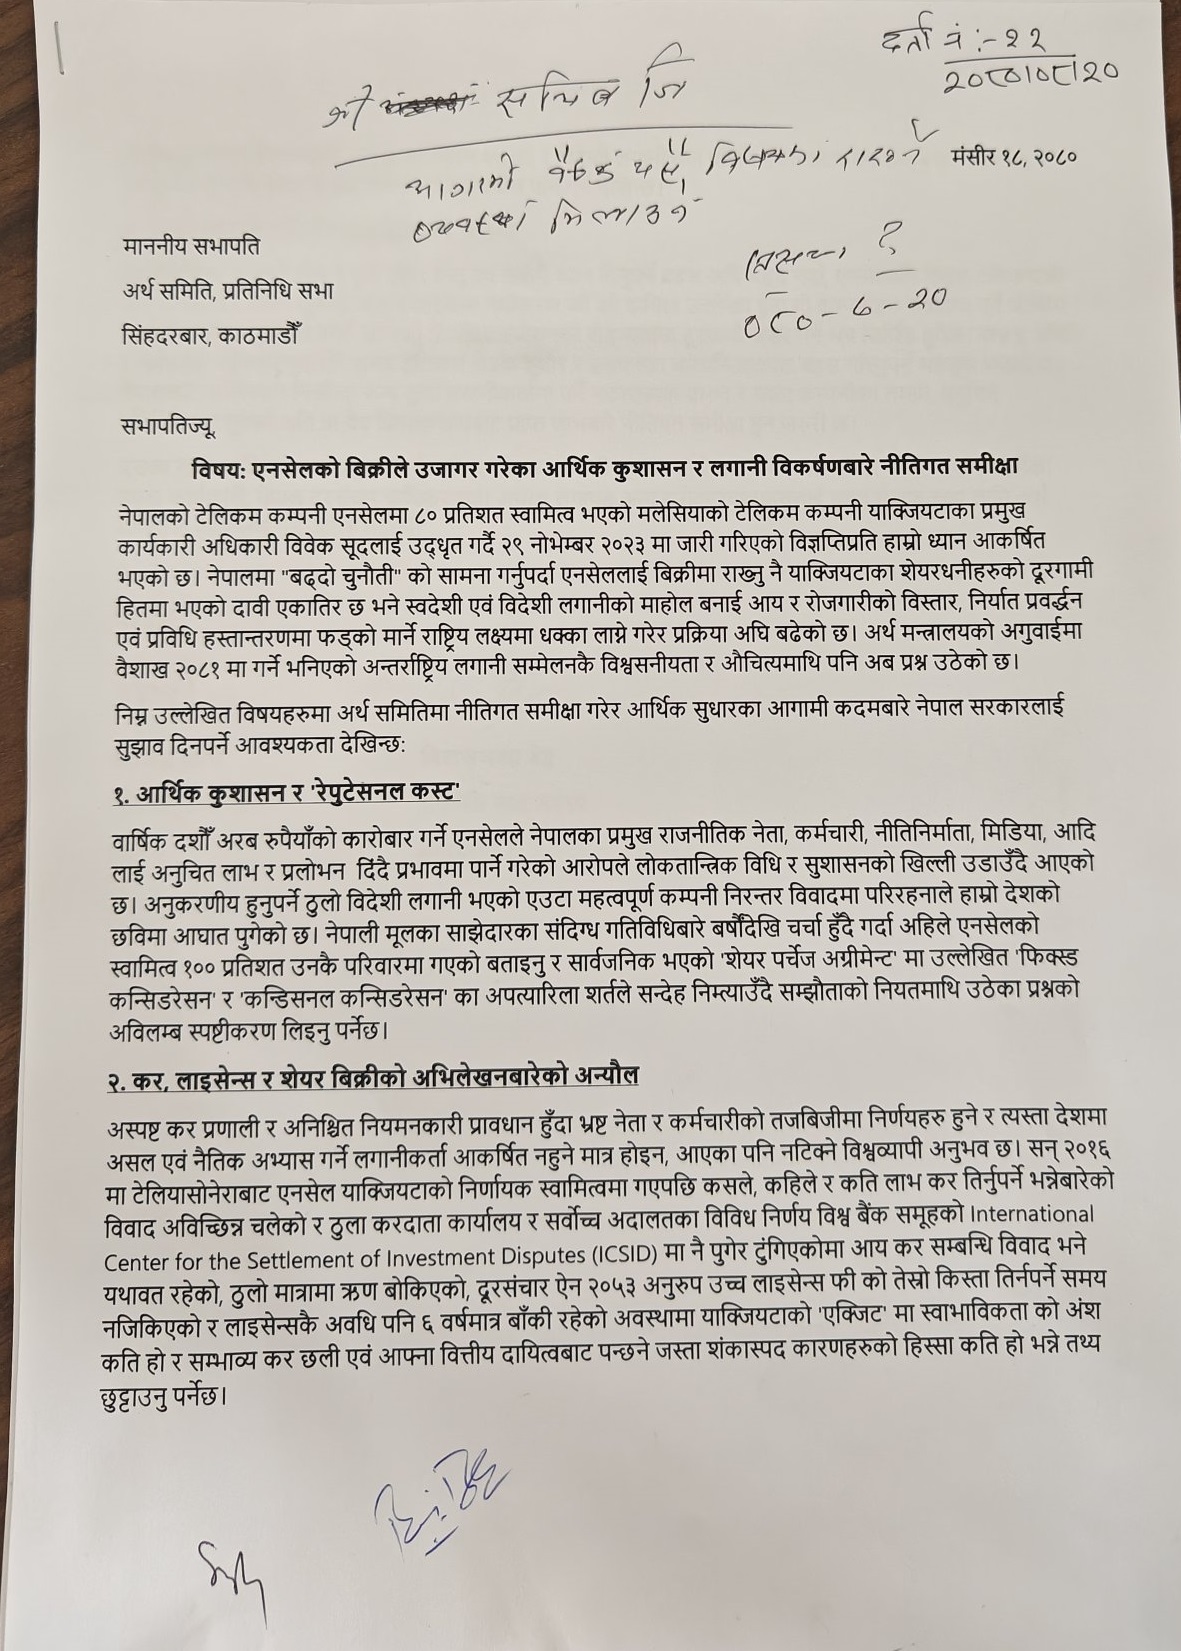 दर्ता नं :- २२
२०८०।०८।२०
श्री सचिव जि
आगामी बैठक यसै विषयमा राख्ने
व्यवस्था मिलाउने
मंसीर १८, २०८०
०८०-८-२०
माननीय सभापति
अर्थ समिति, प्रतिनिधि सभा
सिंहदरबार, काठमाडौँ
सभापतिज्यू,
विषय: एनसेलको बिक्रीले उजागर गरेका आर्थिक कुशासन र लगानी विकर्षणबारे नीतिगत समीक्षा
नेपालको टेलिकम कम्पनी एनसेलमा ८० प्रतिशत स्वामित्व भएको मलेसियाको टेलिकम कम्पनी याक्जियटाका प्रमुख
कार्यकारी अधिकारी विवेक सूदलाई उद्धृत गर्दै २९ नोभेम्बर २०२३ मा जारी गरिएको विज्ञप्तिप्रति हाम्रो ध्यान आकर्षित
भएको छ। नेपालमा "बढ्दो चुनौती" को सामना गर्नुपर्दा एनसेललाई बिक्रीमा राख्नु नै याक्जियटाका शेयरधनीहरुको दूरगामी
हितमा भएको दावी एकातिर छ भने स्वदेशी एवं विदेशी लगानीको माहोल बनाई आय र रोजगारीको विस्तार, निर्यात प्रवर्द्धन
एवं प्रविधि हस्तान्तरणमा फड्को मार्ने राष्ट्रिय लक्ष्यमा धक्का लाग्ने गरेर प्रक्रिया अघि बढेको छ। अर्थ मन्त्रालयको अगुवाईमा
वैशाख २०८१ मा गर्ने भनिएको अन्तर्राष्ट्रिय लगानी सम्मेलनकै विश्वसनीयता र औचित्यमाथि पनि अब प्रश्न उठेको छ।
निम्न उल्लेखित विषयहरुमा अर्थ समितिमा नीतिगत समीक्षा गरेर आर्थिक सुधारका आगामी कदमबारे नेपाल सरकारलाई
सुझाव दिनपर्ने आवश्यकता देखिन्छ:
१. आर्थिक कुशासन र 'रेपुटेसनल कस्ट'
वार्षिक दशौँ अरब रुपैयाँको कारोबार गर्ने एनसेलले नेपालका प्रमुख राजनीतिक नेता, कर्मचारी, नीतिनिर्माता, मिडिया, आदि
लाई अनुचित लाभ र प्रलोभन दिंदै प्रभावमा पार्ने गरेको आरोपले लोकतान्त्रिक विधि र सुशासनको खिल्ली उडाउँदै आएको
छ। अनुकरणीय हुनुपर्ने ठुलो विदेशी लगानी भएको एउटा महत्वपूर्ण कम्पनी निरन्तर विवादमा परिरहनाले हाम्रो देशको
छविमा आघात पुगेको छ। नेपाली मूलका साझेदारका संदिग्ध गतिविधिबारे बर्षौंदेखि चर्चा हुँदै गर्दा अहिले एनसेलको
स्वामित्व १०० प्रतिशत उनकै परिवारमा गएको बताइनु र सार्वजनिक भएको 'शेयर पर्चेज अग्रीमेन्ट' मा उल्लेखित 'फिक्स्ड
कन्सिडरेसन' र 'कन्डिसनल कन्सिडरेसन' का अपत्यारिला शर्तले सन्देह निम्त्याउँदै सम्झौताको नियतमाथि उठेका प्रश्नको
अविलम्ब स्पष्टीकरण लिइनु पर्नेछ।
२. कर, लाइसेन्स र शेयर बिक्रीको अभिलेखनबारेको अन्यौल
अस्पष्ट कर प्रणाली र अनिश्चित नियमनकारी प्रावधान हुँदा भ्रष्ट नेता र कर्मचारीको तजबिजीमा निर्णयहरु हुने र त्यस्ता देशमा
असल एवं नैतिक अभ्यास गर्ने लगानीकर्ता आकर्षित नहुने मात्र होइन, आएका पनि नटिक्ने विश्वव्यापी अनुभव छ। सन् २०१६
मा टेलियासोनेराबाट एनसेल याक्जियटाको निर्णायक स्वामित्वमा गएपछि कसले, कहिले र कति लाभ कर तिर्नुपर्ने भन्नेबारेको
विवाद अविच्छिन्न चलेको र ठुला करदाता कार्यालय र सर्वोच्च अदालतका विविध निर्णय विश्व बैंक समूहको International
Center for the Settlement of Investment Disputes (ICSID) मा नै पुगेर टुंगिएकोमा आय कर सम्बन्धि विवाद भने
यथावत रहेको, ठुलो मात्रामा ऋण बोकिएको, दूरसंचार ऐन २०५३ अनुरुप उच्च लाइसेन्स फी को तेस्रो किस्ता तिर्नपर्ने समय
नजिकिएको र लाइसेन्सकै अवधि पनि ६ वर्षमात्र बाँकी रहेको अवस्थामा याक्जियटाको 'एक्जिट' मा स्वाभाविकता को अंश
कति हो र सम्भाव्य कर छली एवं आफ्ना वित्तीय दायित्वबाट पन्छने जस्ता शंकास्पद कारणहरुको हिस्सा कति हो भन्ने तथ्य
छुट्टाउनु पर्नेछ।